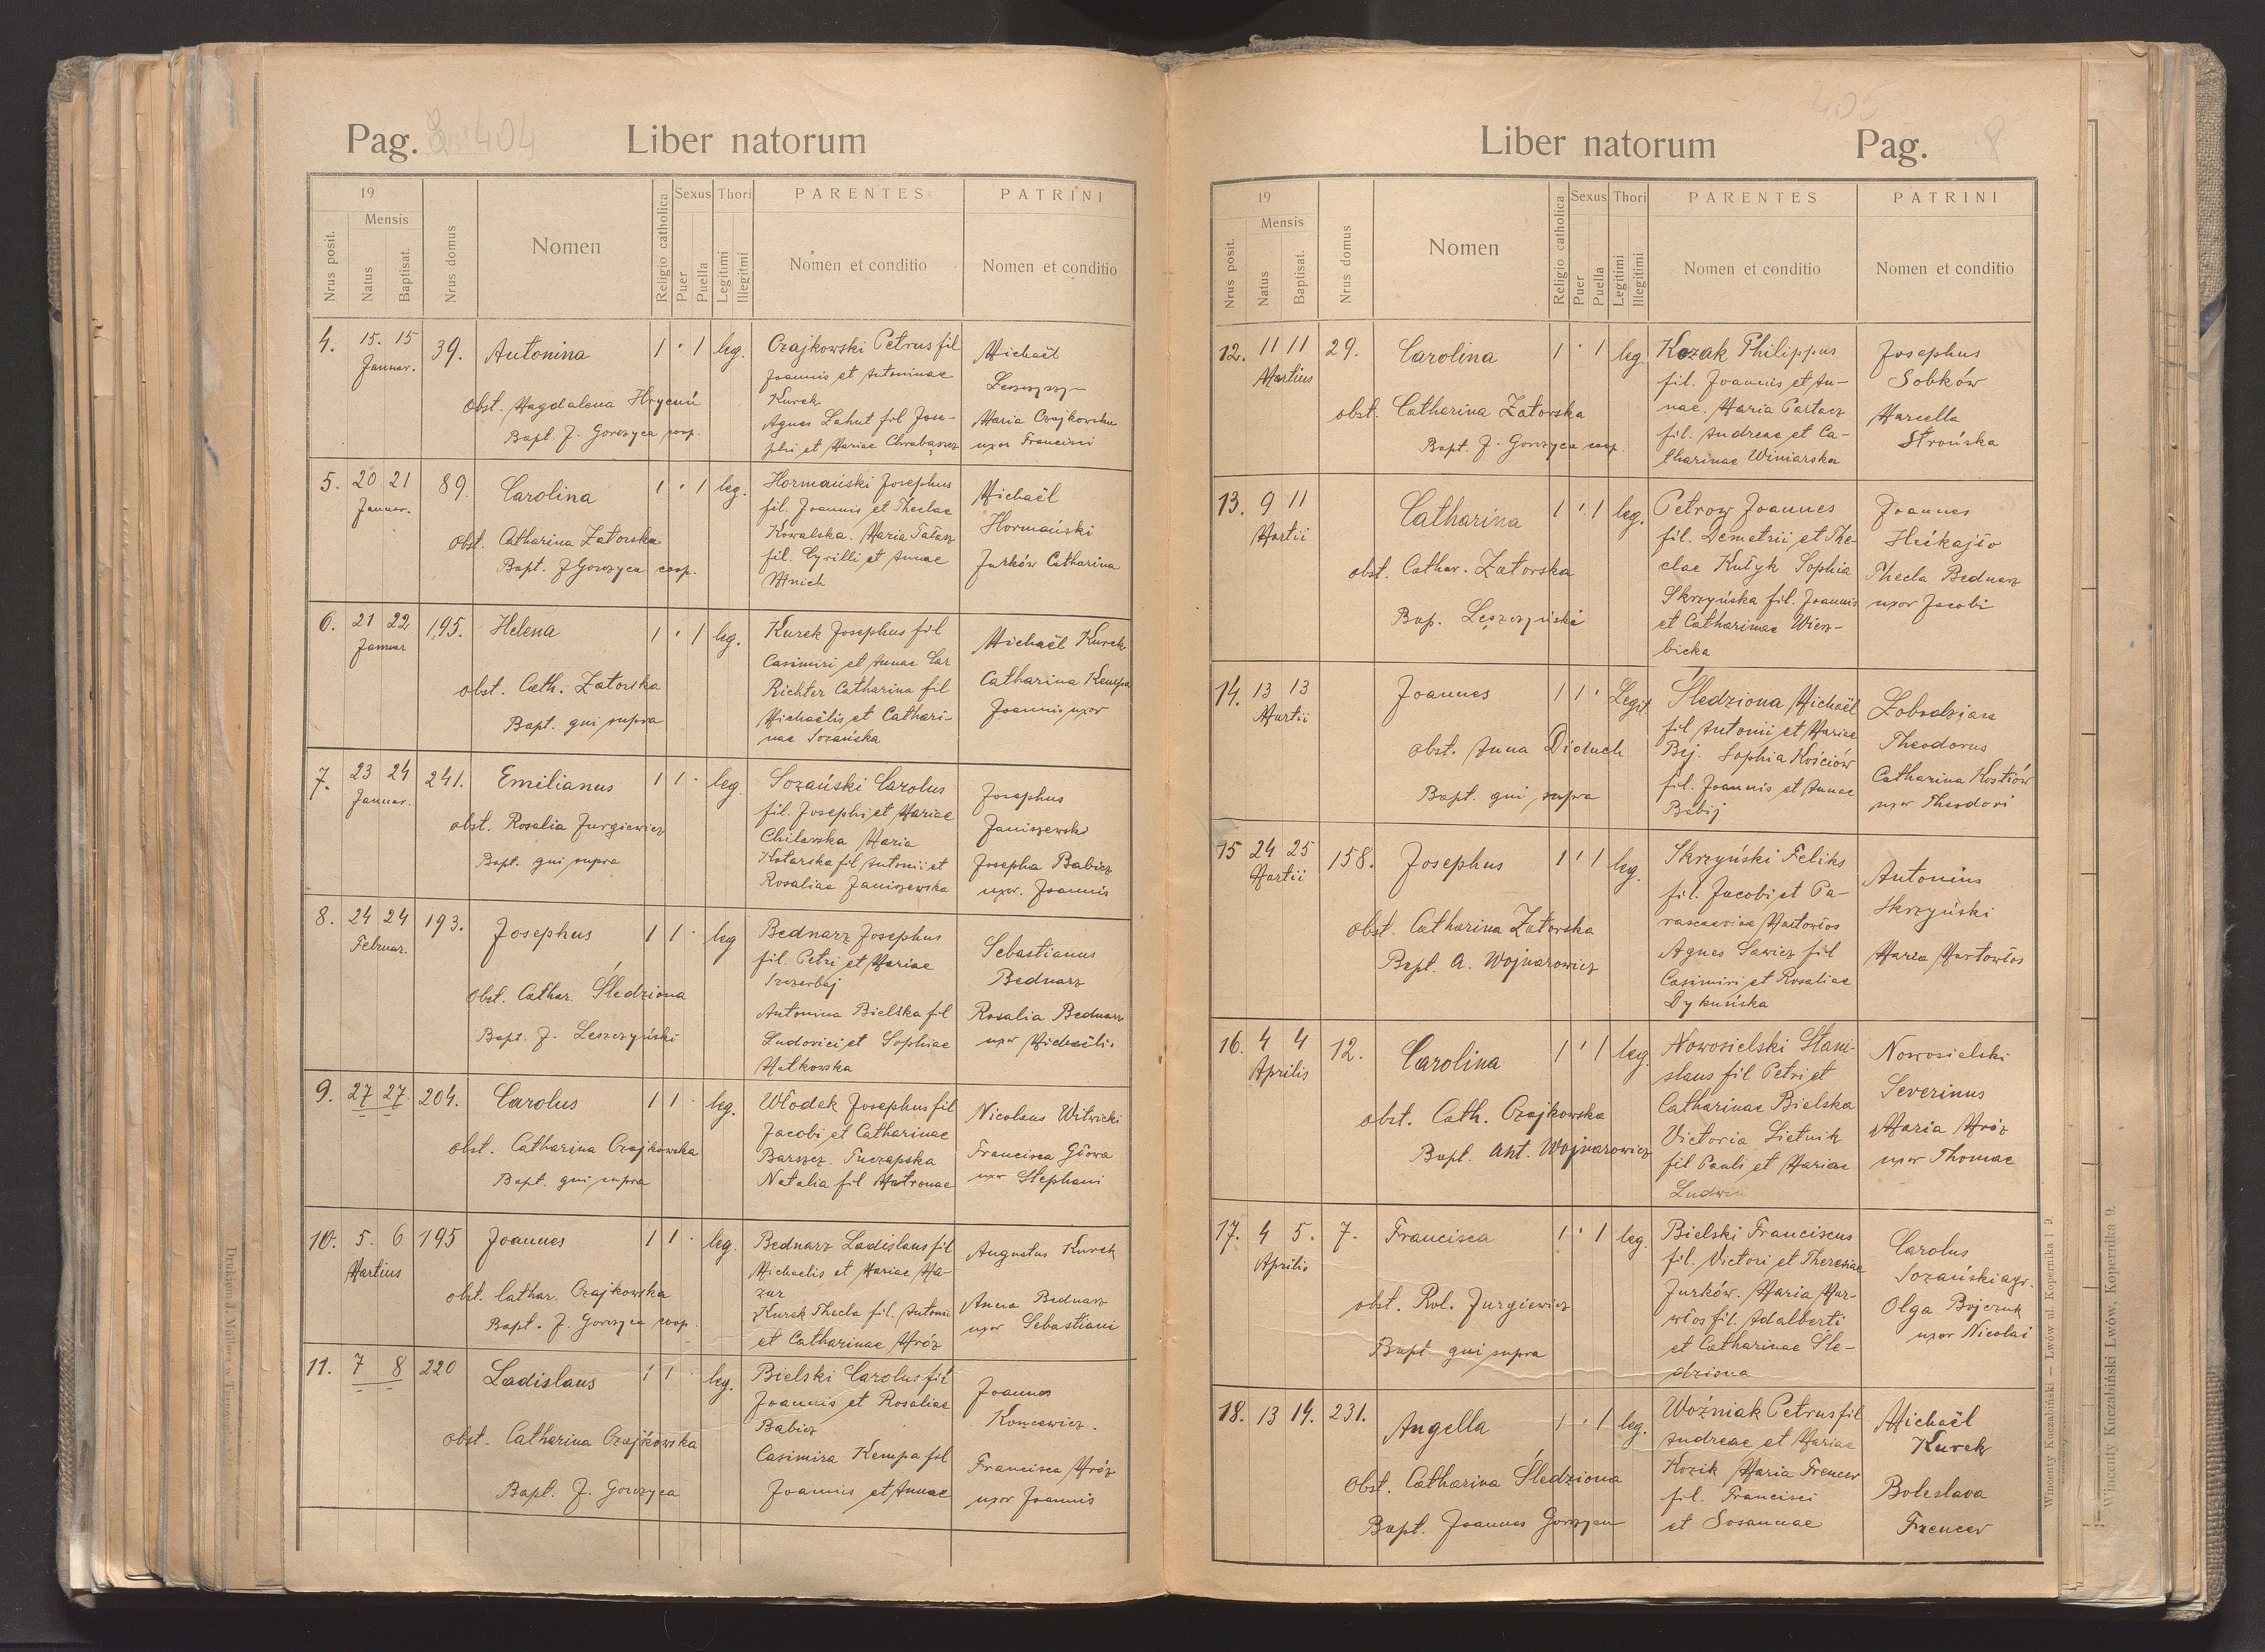 Pag. 8 404 Liber natorum
19
Nrus posit. Mensis Natus Baptisat. Nrus domus Nomen Religio catholica Sexus Puer Puella Thori Legitimi Illegitmi PARENTES Nomen et conditio PATRINI Nomen et conditio
4. 15. 15 Januar. 39. Antonina 1 · 1 leg.
Obst. Magdalena Hrycuń
Bapt. J. Gorczyca coop.
Czajkowski Petrus fil
Joannis et Antoninae
Kurek
Agnes Lahut fil Jose-
phi et Mariae Chrabąszcz
Michaël
Maria Czajkowska
uxor Francisci
5. 20 21 Januar. 89. Carolina 1 · 1 leg.
Obst. Catharina Zatorska
Bapt. J Gorczyca coop.
Hormański Josephus
fil. Joannis et Theclae
Kowalska. Maria Tatasz
fil. Cyrilli et Annae
Mnich
Michaël
Hormański
Jurków Catharina
6. 21 22 Januar 195. Helena 1 · 1 leg.
obst. Cath. Zatorska
Bapt. qui supra
Kurek Josephus fil
Casimiri et Annae Car
Richter Catharina fil
Michaëlis et Cathari-
nae Sozańska
Michaël Kurek
Catharina Kempa
Joannis uxor
7. 23 24 Januar. 241. Emilianus 1 1 · leg.
obst. Rosalia Jurgiewicz
Bapt. qui supra
Sozański Carolus
fil. Josephi et Mariae
Chilarska Maria
Kotarska fil Antonii et
Rosaliae Janiszewska
Josephus
Janiszewski
Josepha Babicz
uxor. Joannis
8. 24 24 Februar. 193. Josephus 1 1 · leg
Obst. Cathar. Śledziona
Bapt. J. Leszczyński
Bednarz Josephus
fil. Petri et Mariae
Szczerbaj
Antonina Bielska fil
Ludovici et Sophiae
Hatkowska
Sebastianus
Bednarz
Rosalia Bednarz
uxor Michaëlis
9. 27 27. 204. Carolus 1 1 · leg.
obst. Catharina Czajkowska
Bapt. qui supra
Włodek Josephus fil
Jacobi et Catharinae
Barszcz. Tuczapska
Natalia fil Matronae
Nicolaus Witwicki
Francisca Głowa
uxor Stephani
10. 5. 6 Martius 195 Joannes 1 1 · leg.
obst. Cathar. Czajkowska
Bapt. J. Gorczyca coop.
Bednarz Ladislaus fil
Michaelis et Mariae Ma-
zur
Kurek Thecla fil. Antonii
et Catharinae Mróz
Augustus Kurek
Anna Bednarz
uxor Sebastiani
11. 7 8 220 Ladislaus 1 1 · leg.
obst. Catharina Czajkowska
Bapt. J. Gorczyca
Bielski Carolus fil
Joannis et Rosaliae
Babicz
Casimira Kempa fil
Joannis et Annae
Joannes
Koncewicz.
Francisca Mróz
uxor Joannis
405
Liber natorum Pag. 8
19
Nrus posit. Mensis Natus Baptisat. Nrus domus Nomen Religio catholica Sexus Puer Puella Thori Legitimi Illegitimi PARENTES Nomen et conditio PATRINI Nomen et conditio
12. 11 11 Martius 29. Carolina 1 · 1 leg.
obst. Catharina Zatorska
Bapt. J. Gorczyca coop.
Kozak Philippus
fil. Joannis et An-
nae. Maria Partacz
fil. Andreae et Ca-
tharinae Winiarska
Josephus
Sobków
Marcella
Strońska
13. 9 11 Martii Catharina 1 · 1 leg.
obst. Cathar. Zatorska
Bap. Leszczyński
Petrow Joannes
fil. Demetrii et The-
clae Kułyk Sophia
Skrzyńska fil. Joannis
et Catharinae Wierz-
bicka
Joannes
Thecla Bednarz
uxor Jacobi
14. 13 13 Martii Joannes 1 1 · Legit
obst. Anna Diduch
Bapt. qui supra
Śledziona Michaël
fil Antonii et Mariae
Bej. Sophia Kościów
fil. Joannis et Annae
Babij
Łobodzian
Theodorus
Catharina Kostiów
uxor Theodori
15 24 25 Martii 158. Josephus 1 1 1 leg.
obst. Catharina Zatorska
Bapt. A. Wojnarowicz
Skrzyński Feliks
fil. Jacobi et Pa-
rascewiae Martowłos
Agnes Sawicz fil
Casimiri et Rosaliae
Dykuńska
Antonius
Skrzyński
Maria Martowłos
16. 4 4 Aprilis 12. Carolina 1 · 1 leg.
obst. Cath. Czajkowska
Bapt. Ant. Wojnarowicz
Nowosielski Stani-
slaus fil Petri et
Catharinae Bielska
Victoria Lietnik
fil Pauli et Mariae
Ludwin
Nowosielski
Severinus
Maria Mróz
uxor Thomae
17. 4 5. Aprilis 7. Francisca 1 · 1 leg.
obst. Rol. Jurgiewicz
Bapt qui supra
Bielski Franciscus
fil. Victori et Theresiae
Jurków. Maria Mar-
włos fil. Adalberti
et Catharinae Śle-
dziona
Carolus
Sozański agr.
Olga Bojczuk
uxor Nicolai
18. 13 14. 231. Angella 1 · 1 leg.
Obst. Catharina Śledziona
Bapt. Joannes Gorczyca
Woźniak Petrus fil
Andreae et Mariae
Kozik Maria Frencer
fil. Francisci
et Sosannae
Michaël
Kurek
Boleslava
Frencer
Wincenty Kuczabiński — Lwów ul. Kopernika 1 9.
Wincenty Kuczabiński Lwów, Kopernika 9.